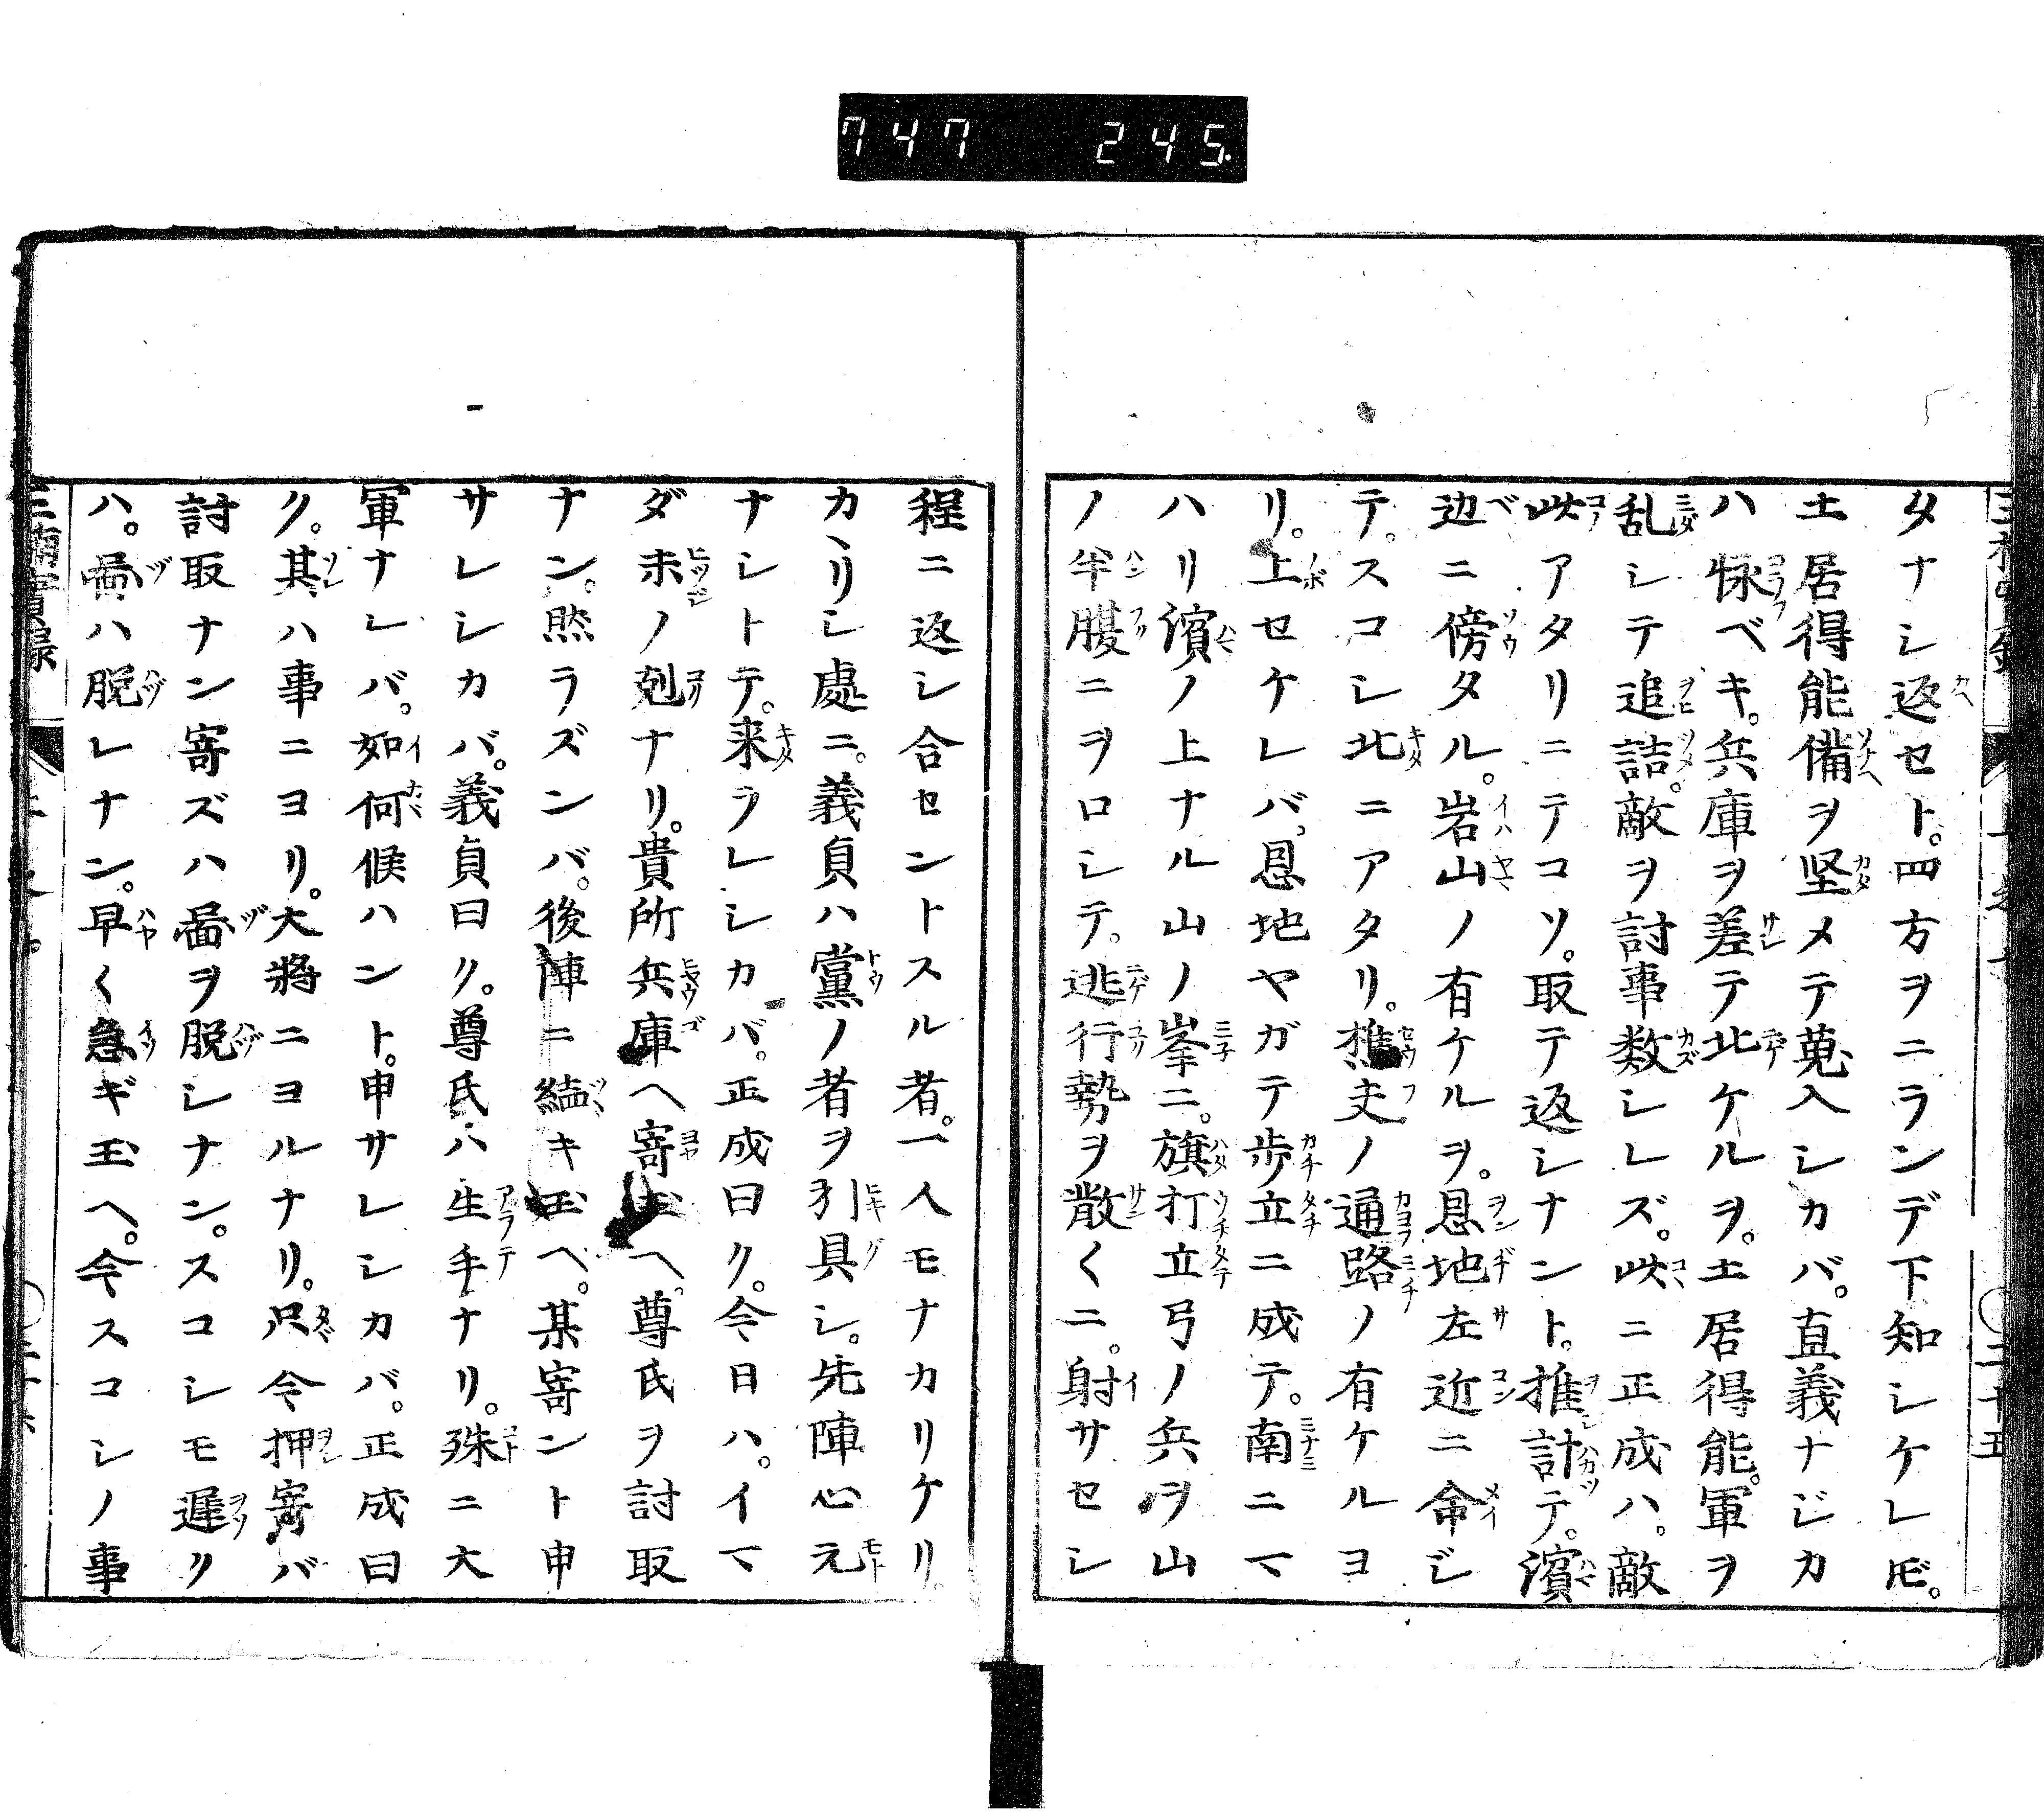 747 245.
タナシ返セト。四方ヲニランデ下知シケレ𪜈。
土居得能備ヲ坚メテ蒐入シカバ。直義ナジカ
ハ怺ベキ。兵庫ヲ差テ北ケルヲ。土居得能。軍ヲ
乱シテ追詰。敵ヲ討事数シレズ。此ニ正成ハ。敵
此アタリニテコソ。取テ返シナント。推計テ。濱
辺ニ傍タル。岩山ノ有ケルヲ。恩地左近ニ命ジ
テ。スコシ北ニアタリ。樵夫ノ通路ノ有ケルヨ
リ。上セケレバ。恩地ヤガテ歩立ニ成テ。南ニマ
ハリ濱ノ上ナル山ノ峯ニ。旗打立弓ノ兵ヲ山
ノ半腹ニヲロシテ。逃行勢ヲ散〱ニ。射サセシ
程ニ返シ合セントスル者。一人モナカリケリ。
カヽリシ處ニ。義貞ハ黨ノ者ヲ引具シ。先陣心元
ナシトテ。来ラレシカバ。正成曰ク。今日ハ。イマ
ダ未ノ剋ナリ。貴所兵庫ヘ寄玉ヘ。尊氏ヲ討取
ナン。然ラズンバ。後陣ニ続キ玉ヘ。某寄ント申
サレシカバ。義貞曰ク。尊氏ハ生手ナリ。殊ニ大
軍ナレバ。如何候ハント。申サレシカバ。正成曰
ク。其ハ事ニヨリ。大將ニヨルナリ。只今押寄バ
討取ナン寄ズハ啚ヲ脱シナン。スコシモ遲ク
ハ。啚ハ脱レナン。早〱急ギ玉ヘ。今スコシノ事
三楠實録
二十五